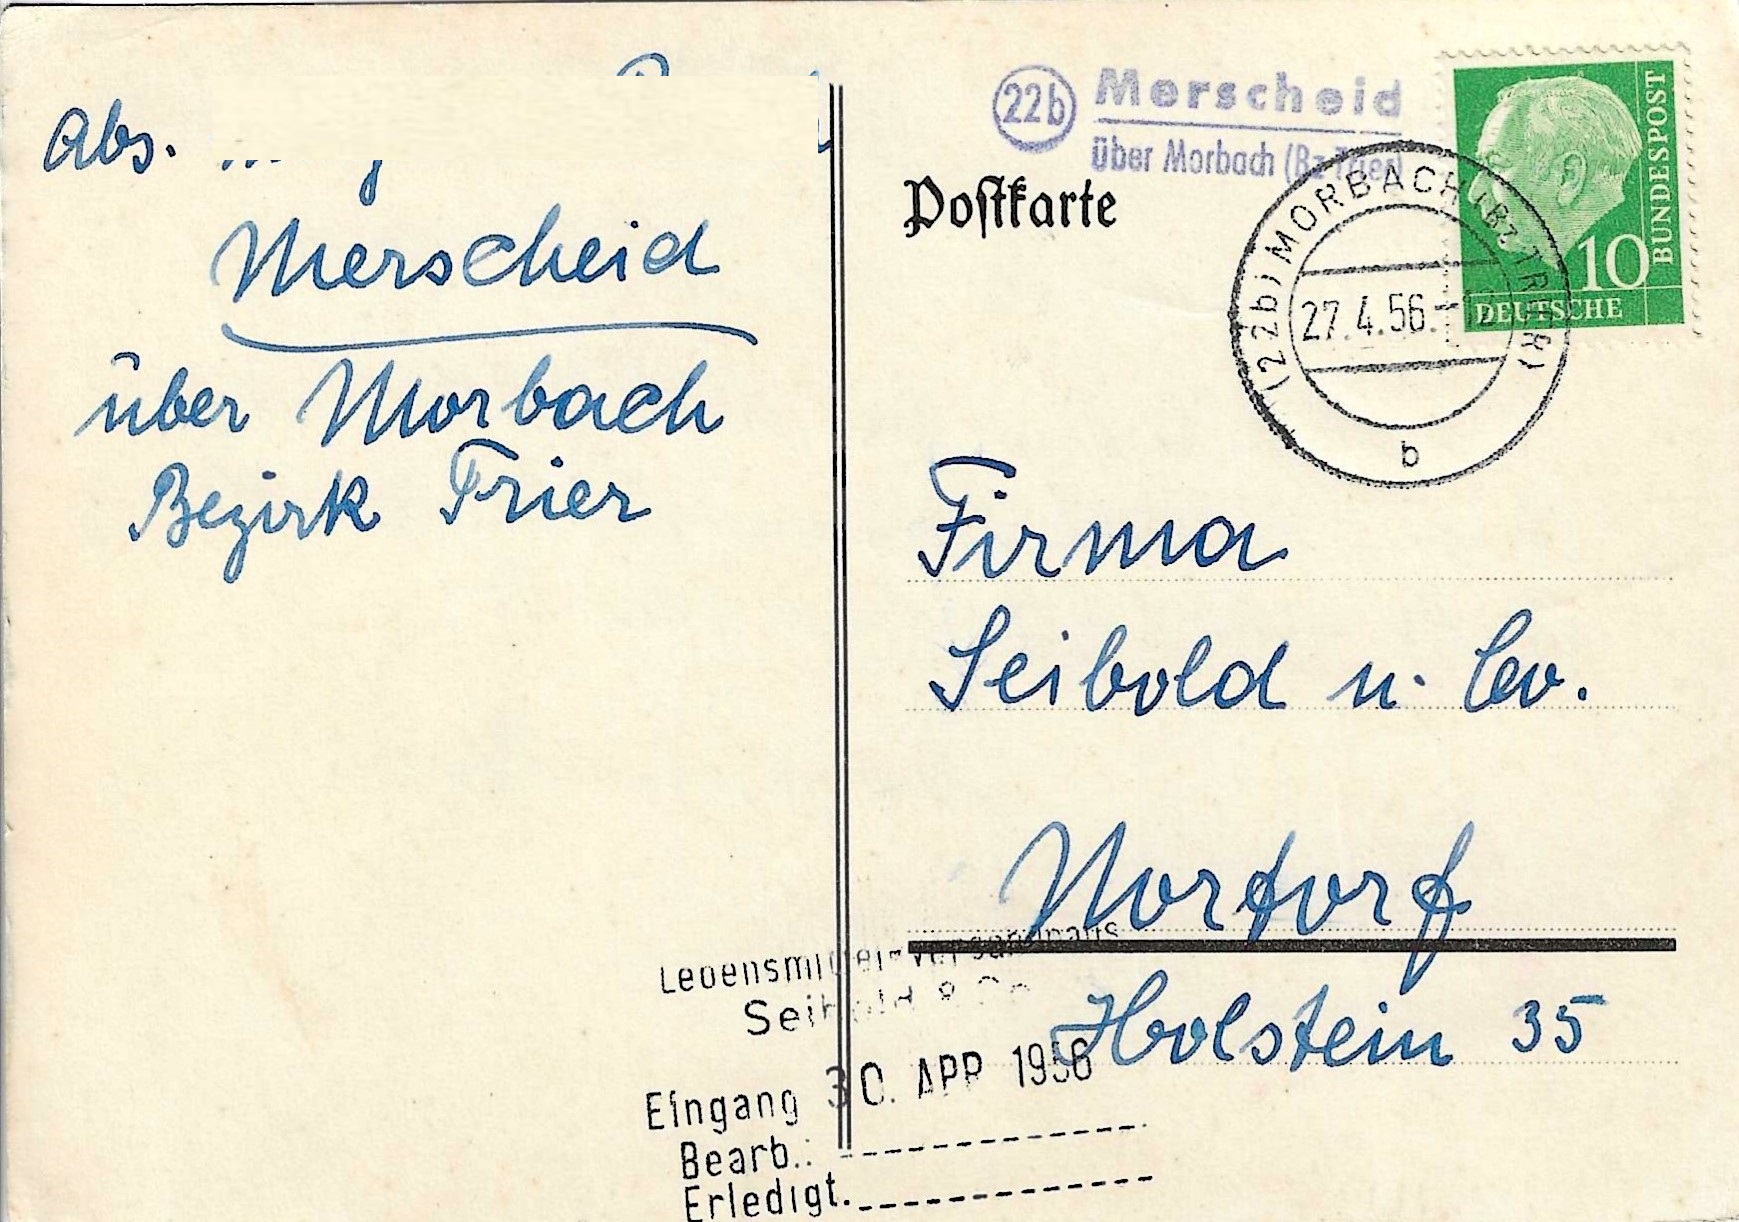 Abs.
Merscheid
über Morbach
Bezirk Trier
22b Merscheid
über Morbach (Bz Trier)
Postkarte
BUNDESPOST
10
DEUTSCHE
(22b) MORBACH (Bz. TRIER)
27.4.56.
b
Firma
Seibold u. Co.
Nortorf
Holstein 35
Lebensmittel-Versandhaus
Seibold & Co
Eingang 30. APR 1956
Bearb.:
Erledigt.